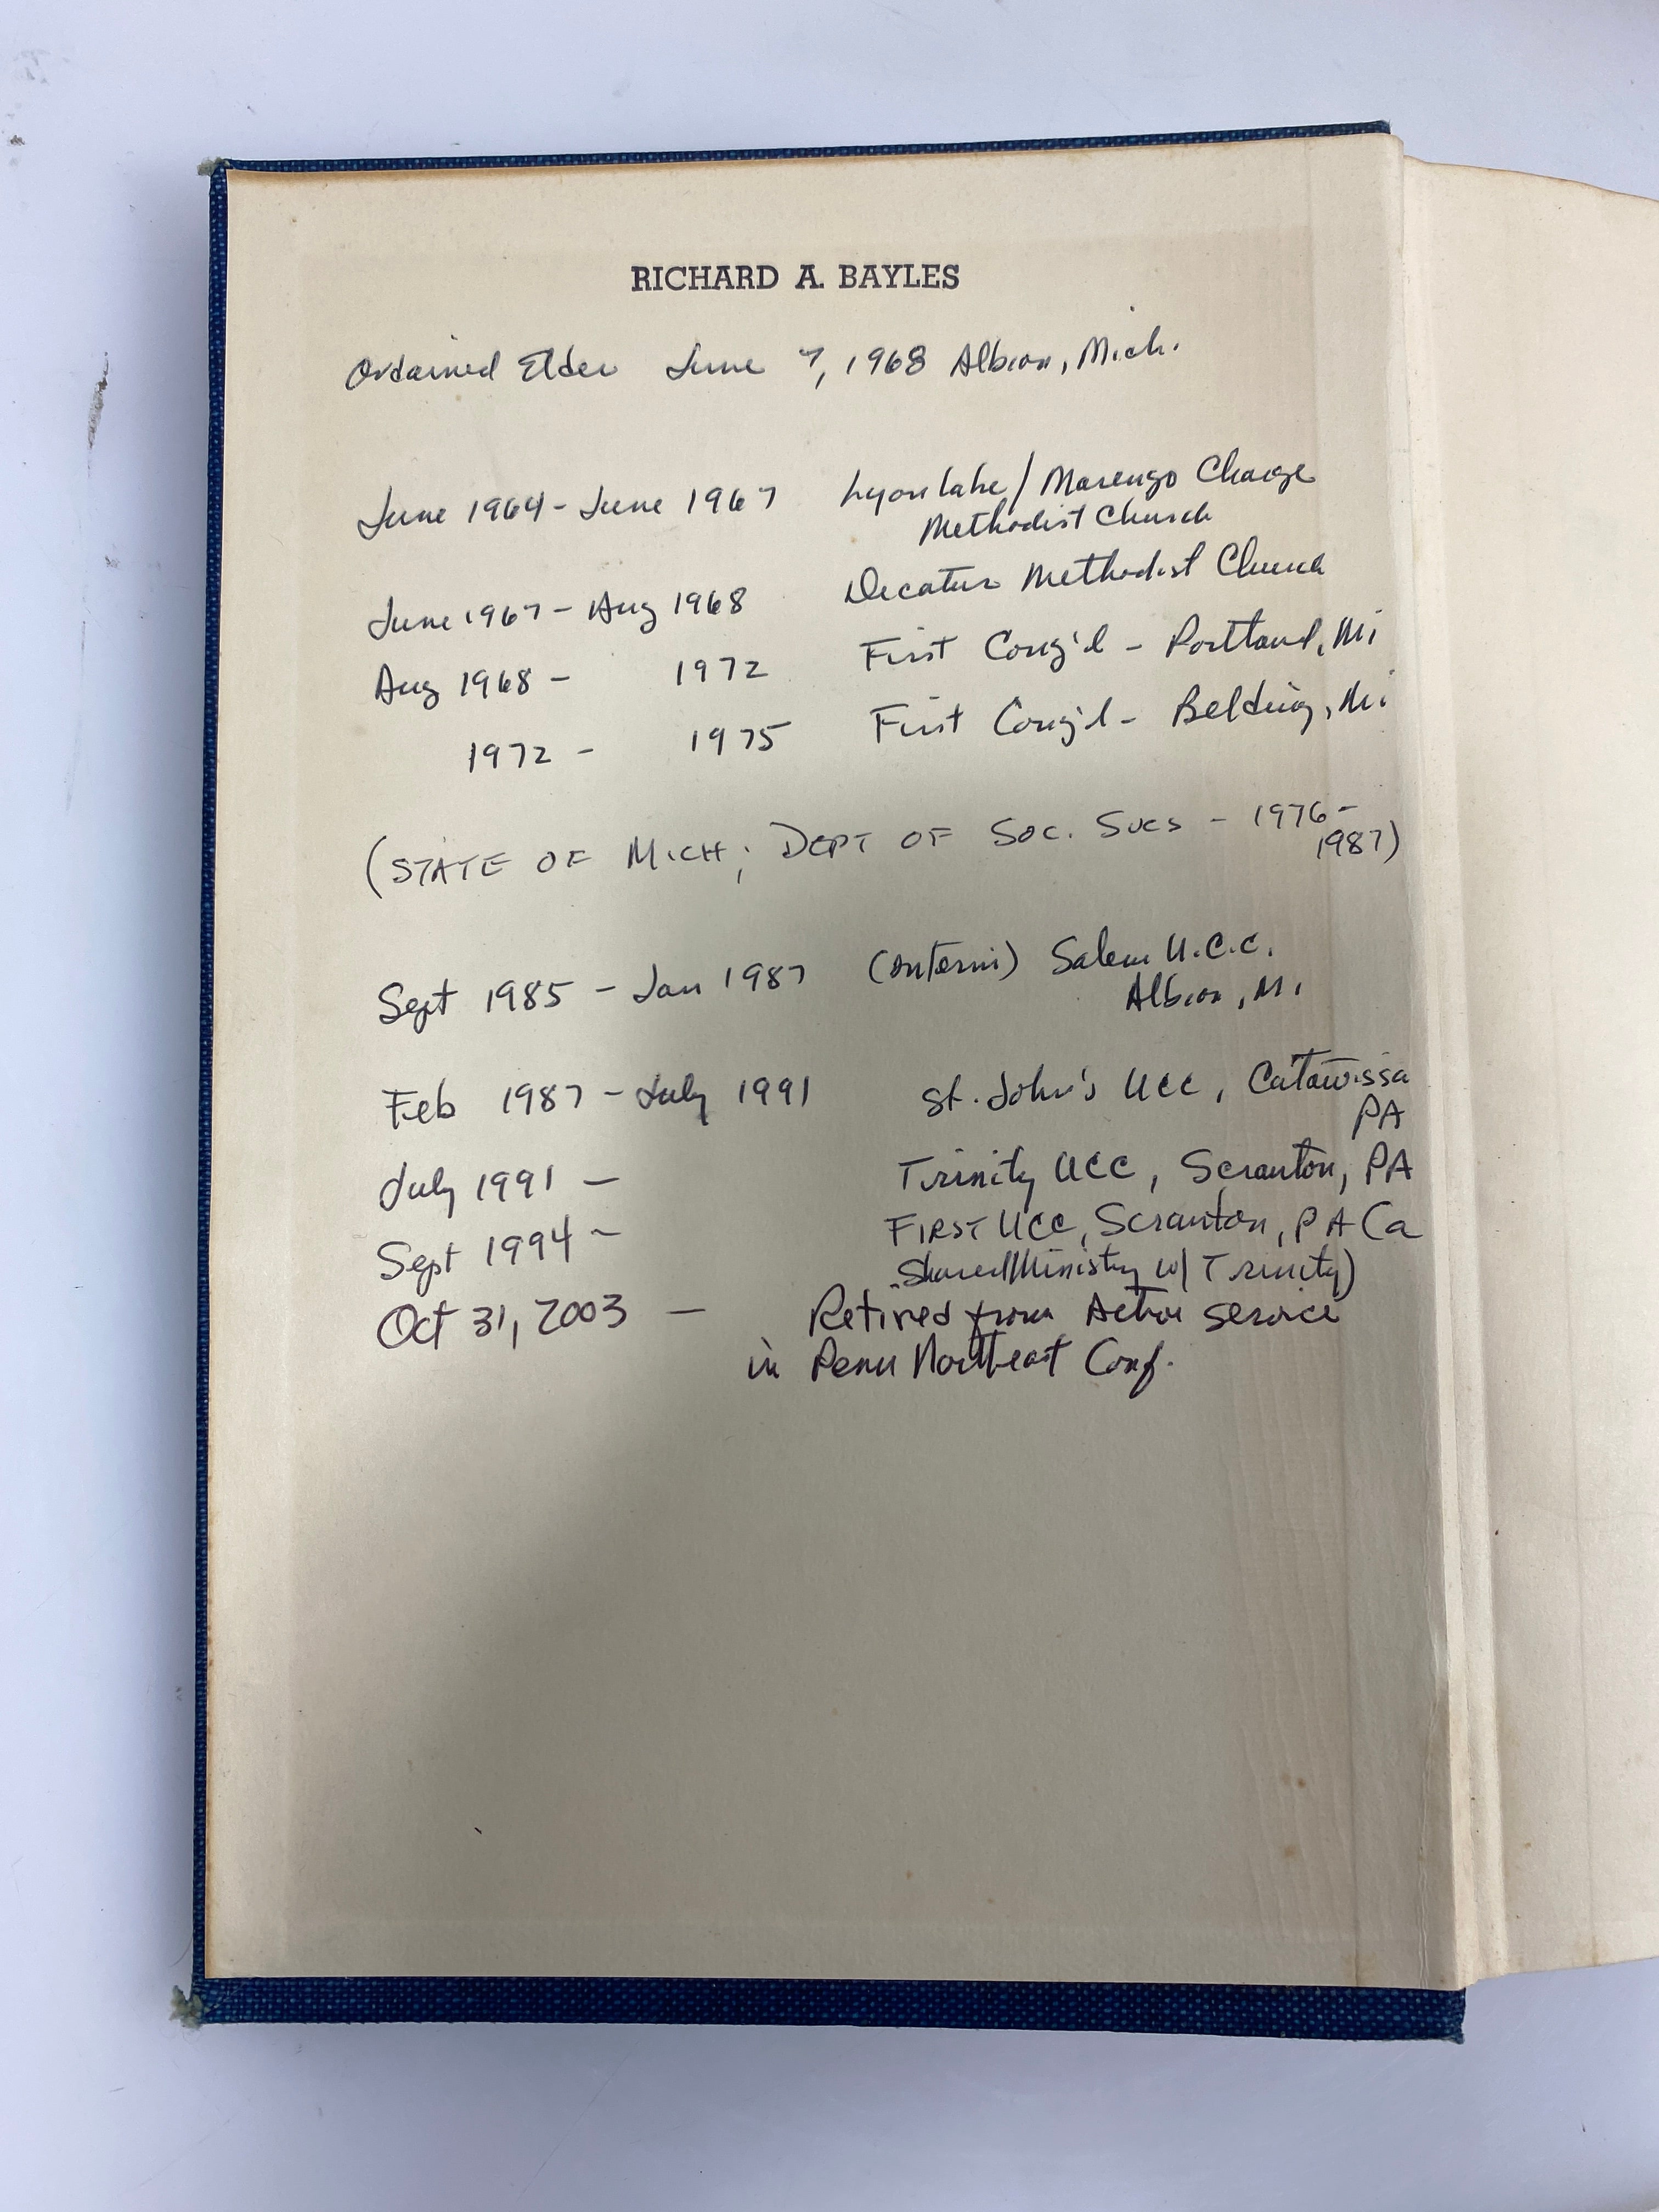 RICHARD A. BAYLES
Ordained Elder June 7, 1968 Albion, Mich.
June 1964 - June 1967 Lyon Lake / Marengo Charge
Methodist Church
June 1967 - Aug 1968 Decatur Methodist Church
Aug 1968 - 1972 First Cong'l - Portland, Mi
1972 - 1975 First Cong'l - Belding, Mi
(STATE OF MICH; DEPT OF SOC. SVCS - 1976 -
1987)
Sept 1985 - Jan 1987 (Interim) Salem U.C.C.
Albion, Mi
Feb 1987 - July 1991 St. John's UCC, Catawissa
PA
July 1991 - Trinity UCC, Scranton, PA
Sept 1994 - FIRST UCC, Scranton, PA (a
Shared Ministry w/ Trinity)
Oct 31, 2003 - Retired from Active service
in Penn Northeast Conf.